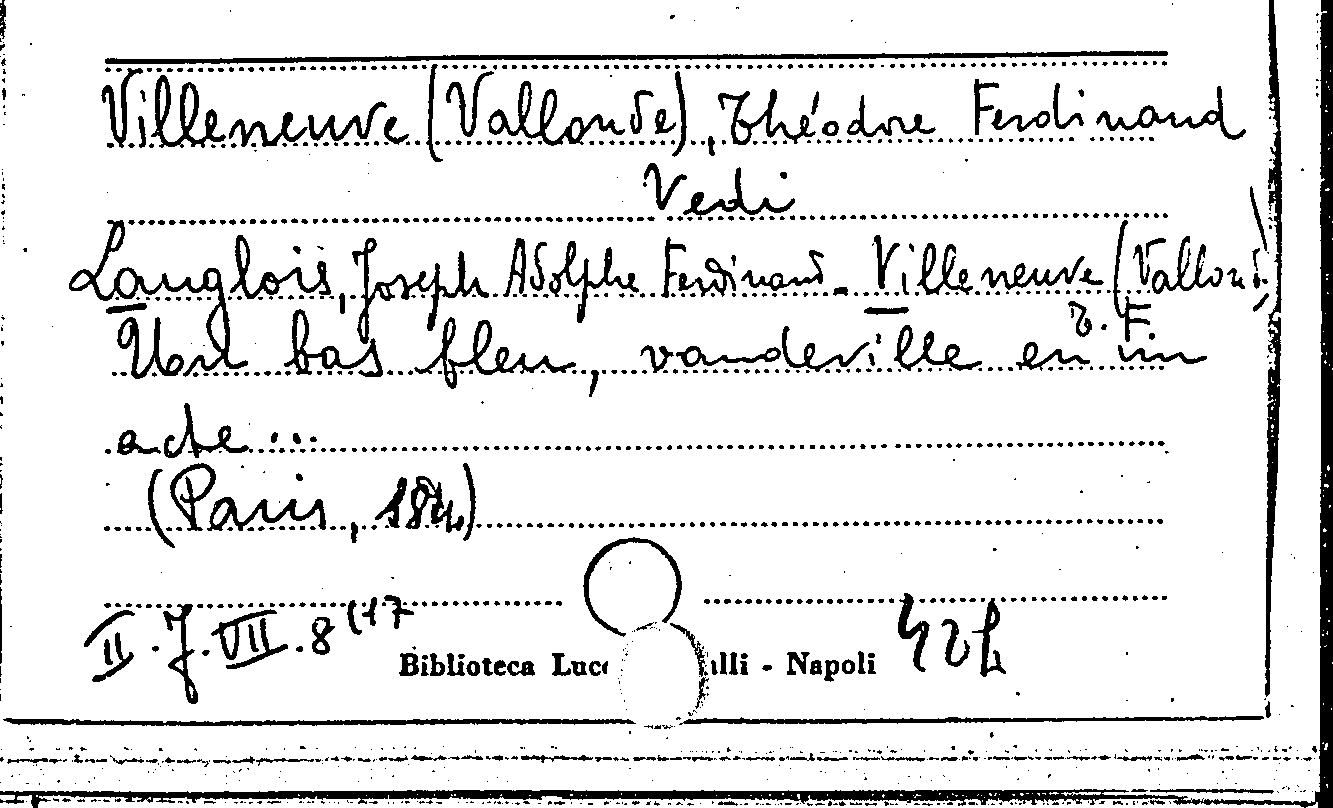 Villeneuve (Vallonde), Théodore Ferdinand
Vedi
Langlois, Joseph Adolphe Ferdinand - Villeneuve (Vallond.)
T. F.
Un bas bleu, vaudeville en un
acte...
(Paris, 184.)
II. J. VII. 8 (17
Biblioteca Lucc lli - Napoli